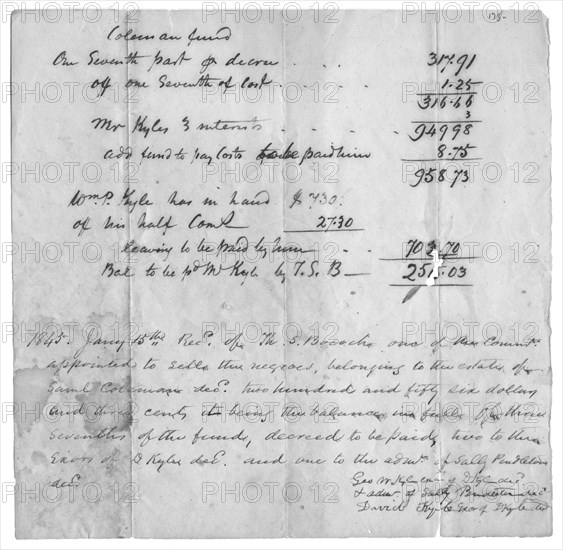 138.
Coleman fund
One Seventh part of decree . . . 317.91
off one Seventh of Cost . . . 1.25
316.66
3
Mr Kyles 3 interests . . . . 949 98
add fund to pay Costs to be paid him 8.75
958.73
Wm. P. Kyle has in hand $ 730.
of his half Comt 27.30
leaving to be paid by him . . 702.70
Bal to be pd Mr Kyle by T. S. B — 25 .03
1845. Jany 15th Rec. of Th. S. Bocock one of the Commrs.
appointed to sell the negroes, belonging to the estate of
Saml Coleman dec. two hundred and fifty six dollars
and three cents it being the balance in full of three
Sevenths of the fund, decreed to be paid, two to the
Exors of D Kyle dec. and one to the admr. of Sally Pendleton
dec.
Geo W Kyle exr of D Kyle dec
& admr. of Sally Pendleton dec
David Kyle Exor of D Kyle dec